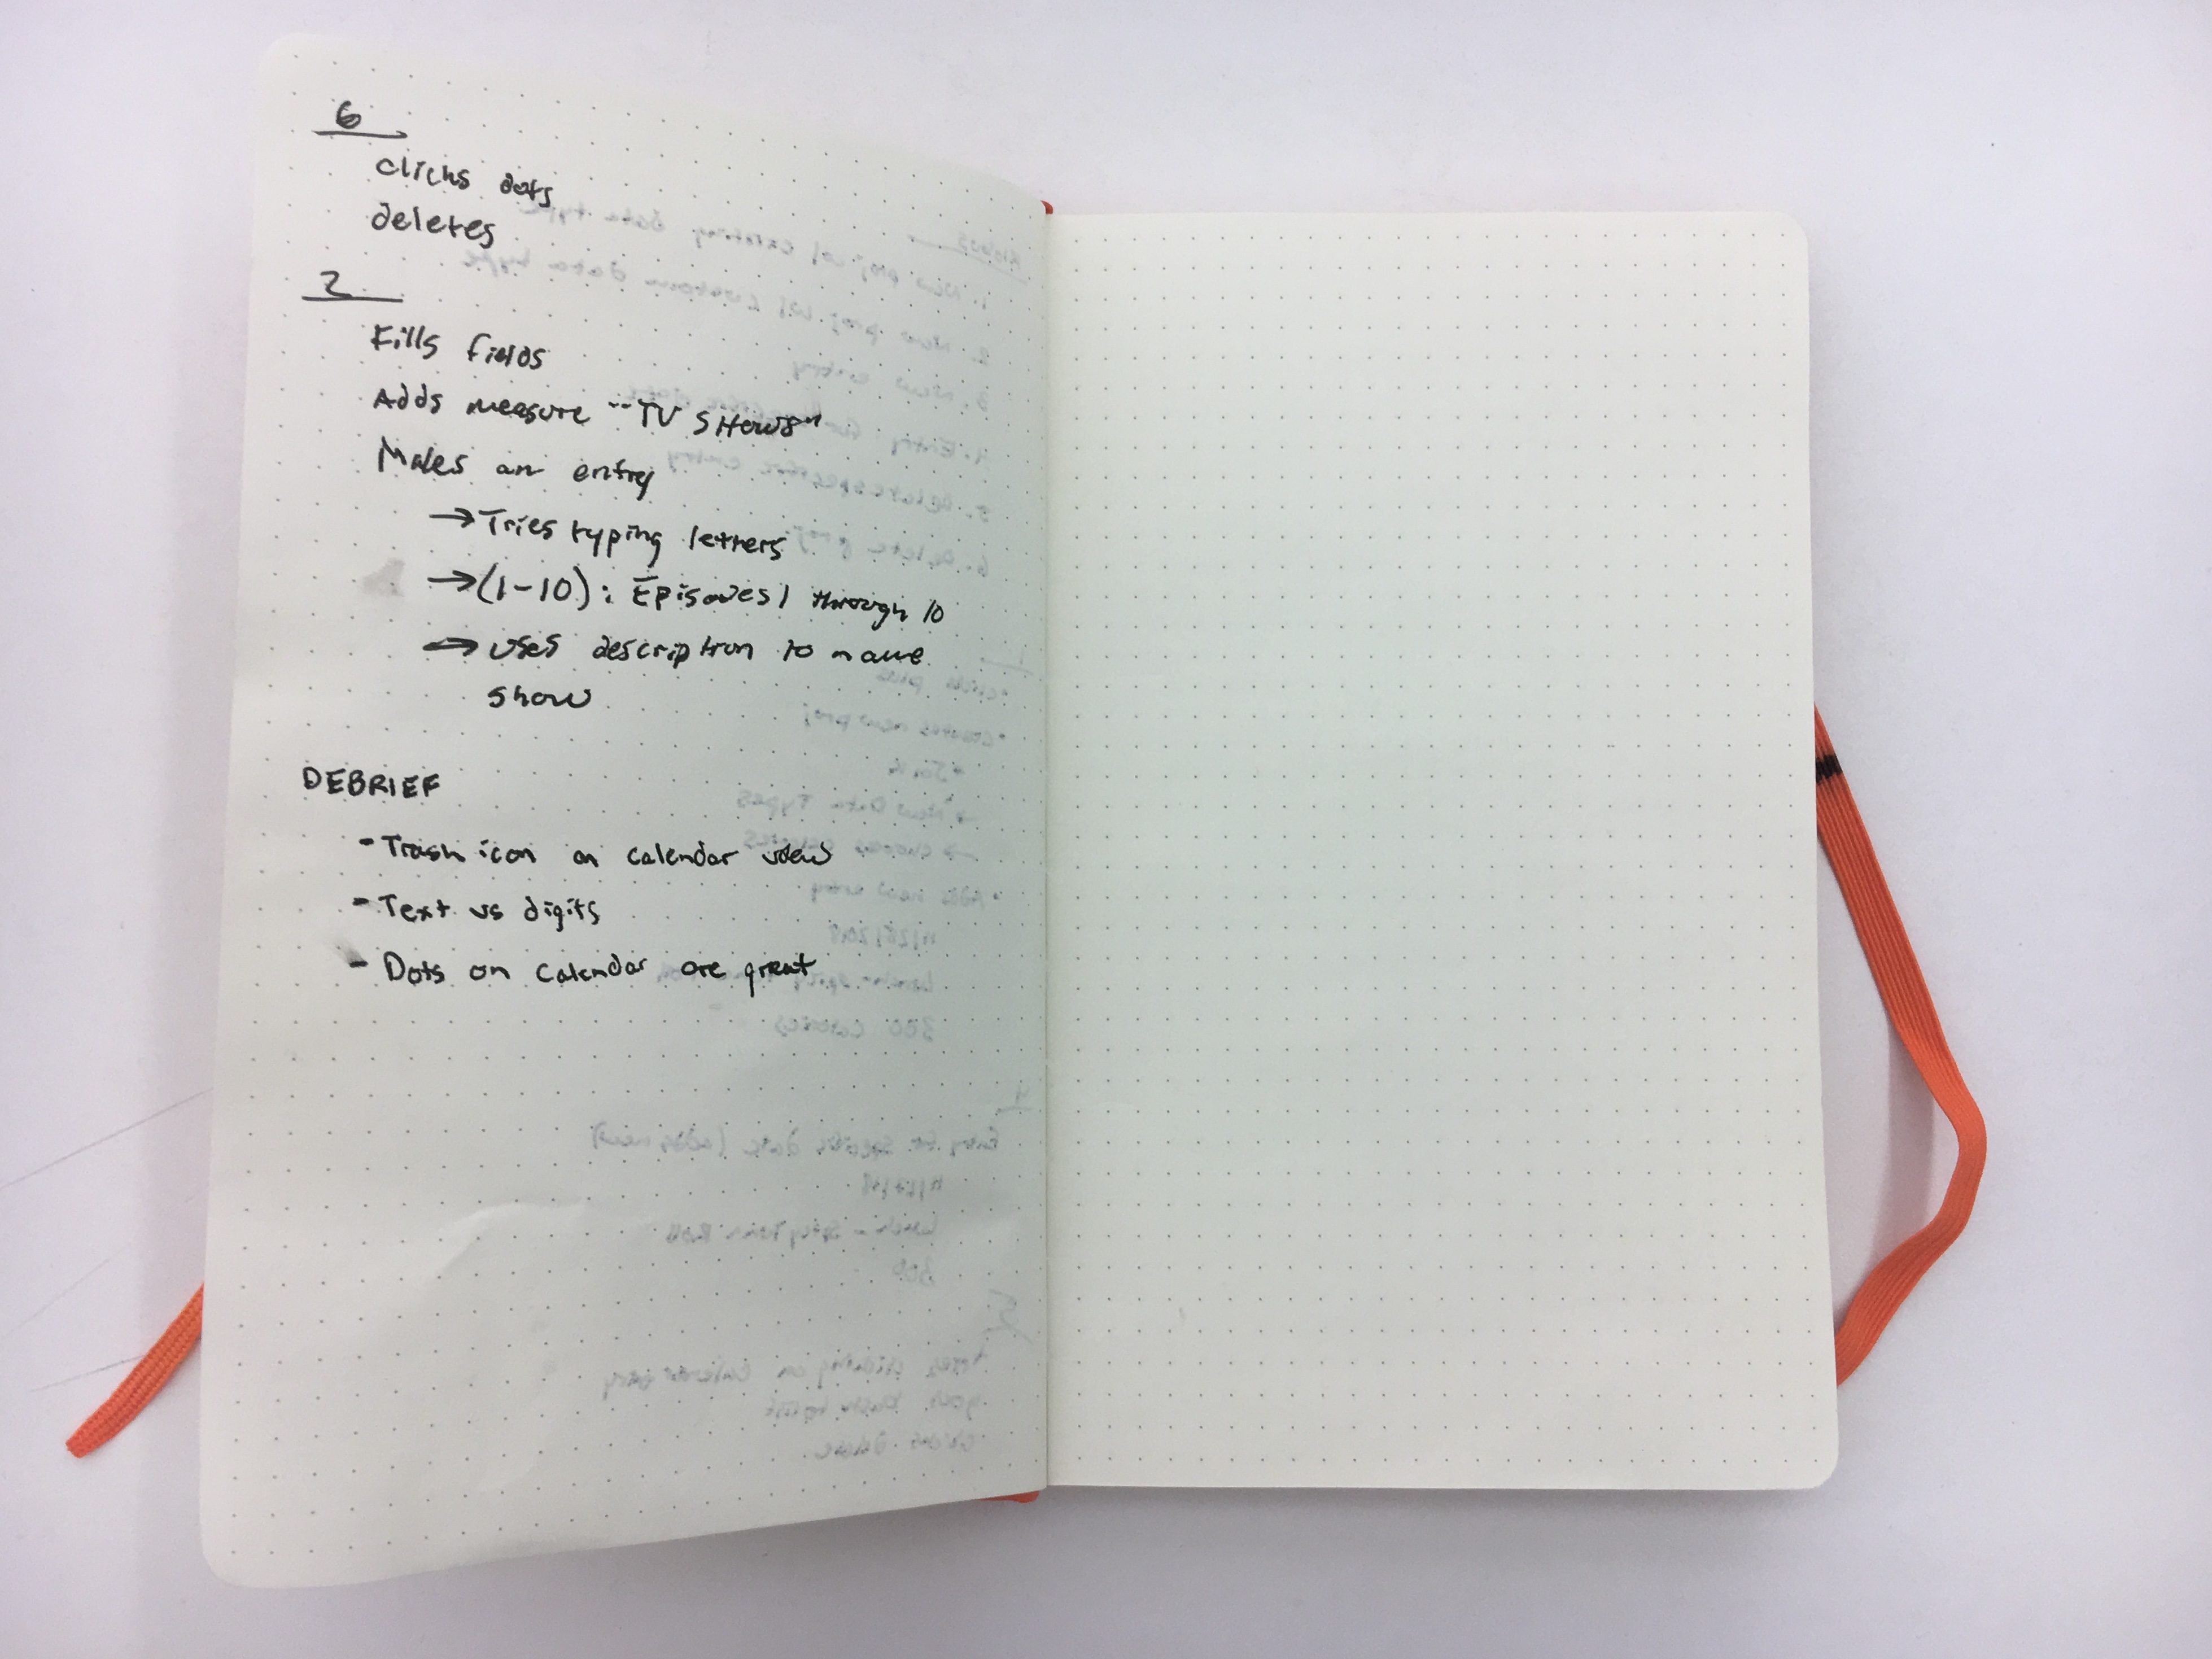 6
clicks dots
deletes
2
Fills fields
Adds measure "TV SHOWS"
Makes an entry
→ Tries typing letters
→ (1-10): Episodes 1 through 10
→ uses description to name
show
DEBRIEF
- Trash icon on calendar view
- Text vs digits
- Dots on calendar are great